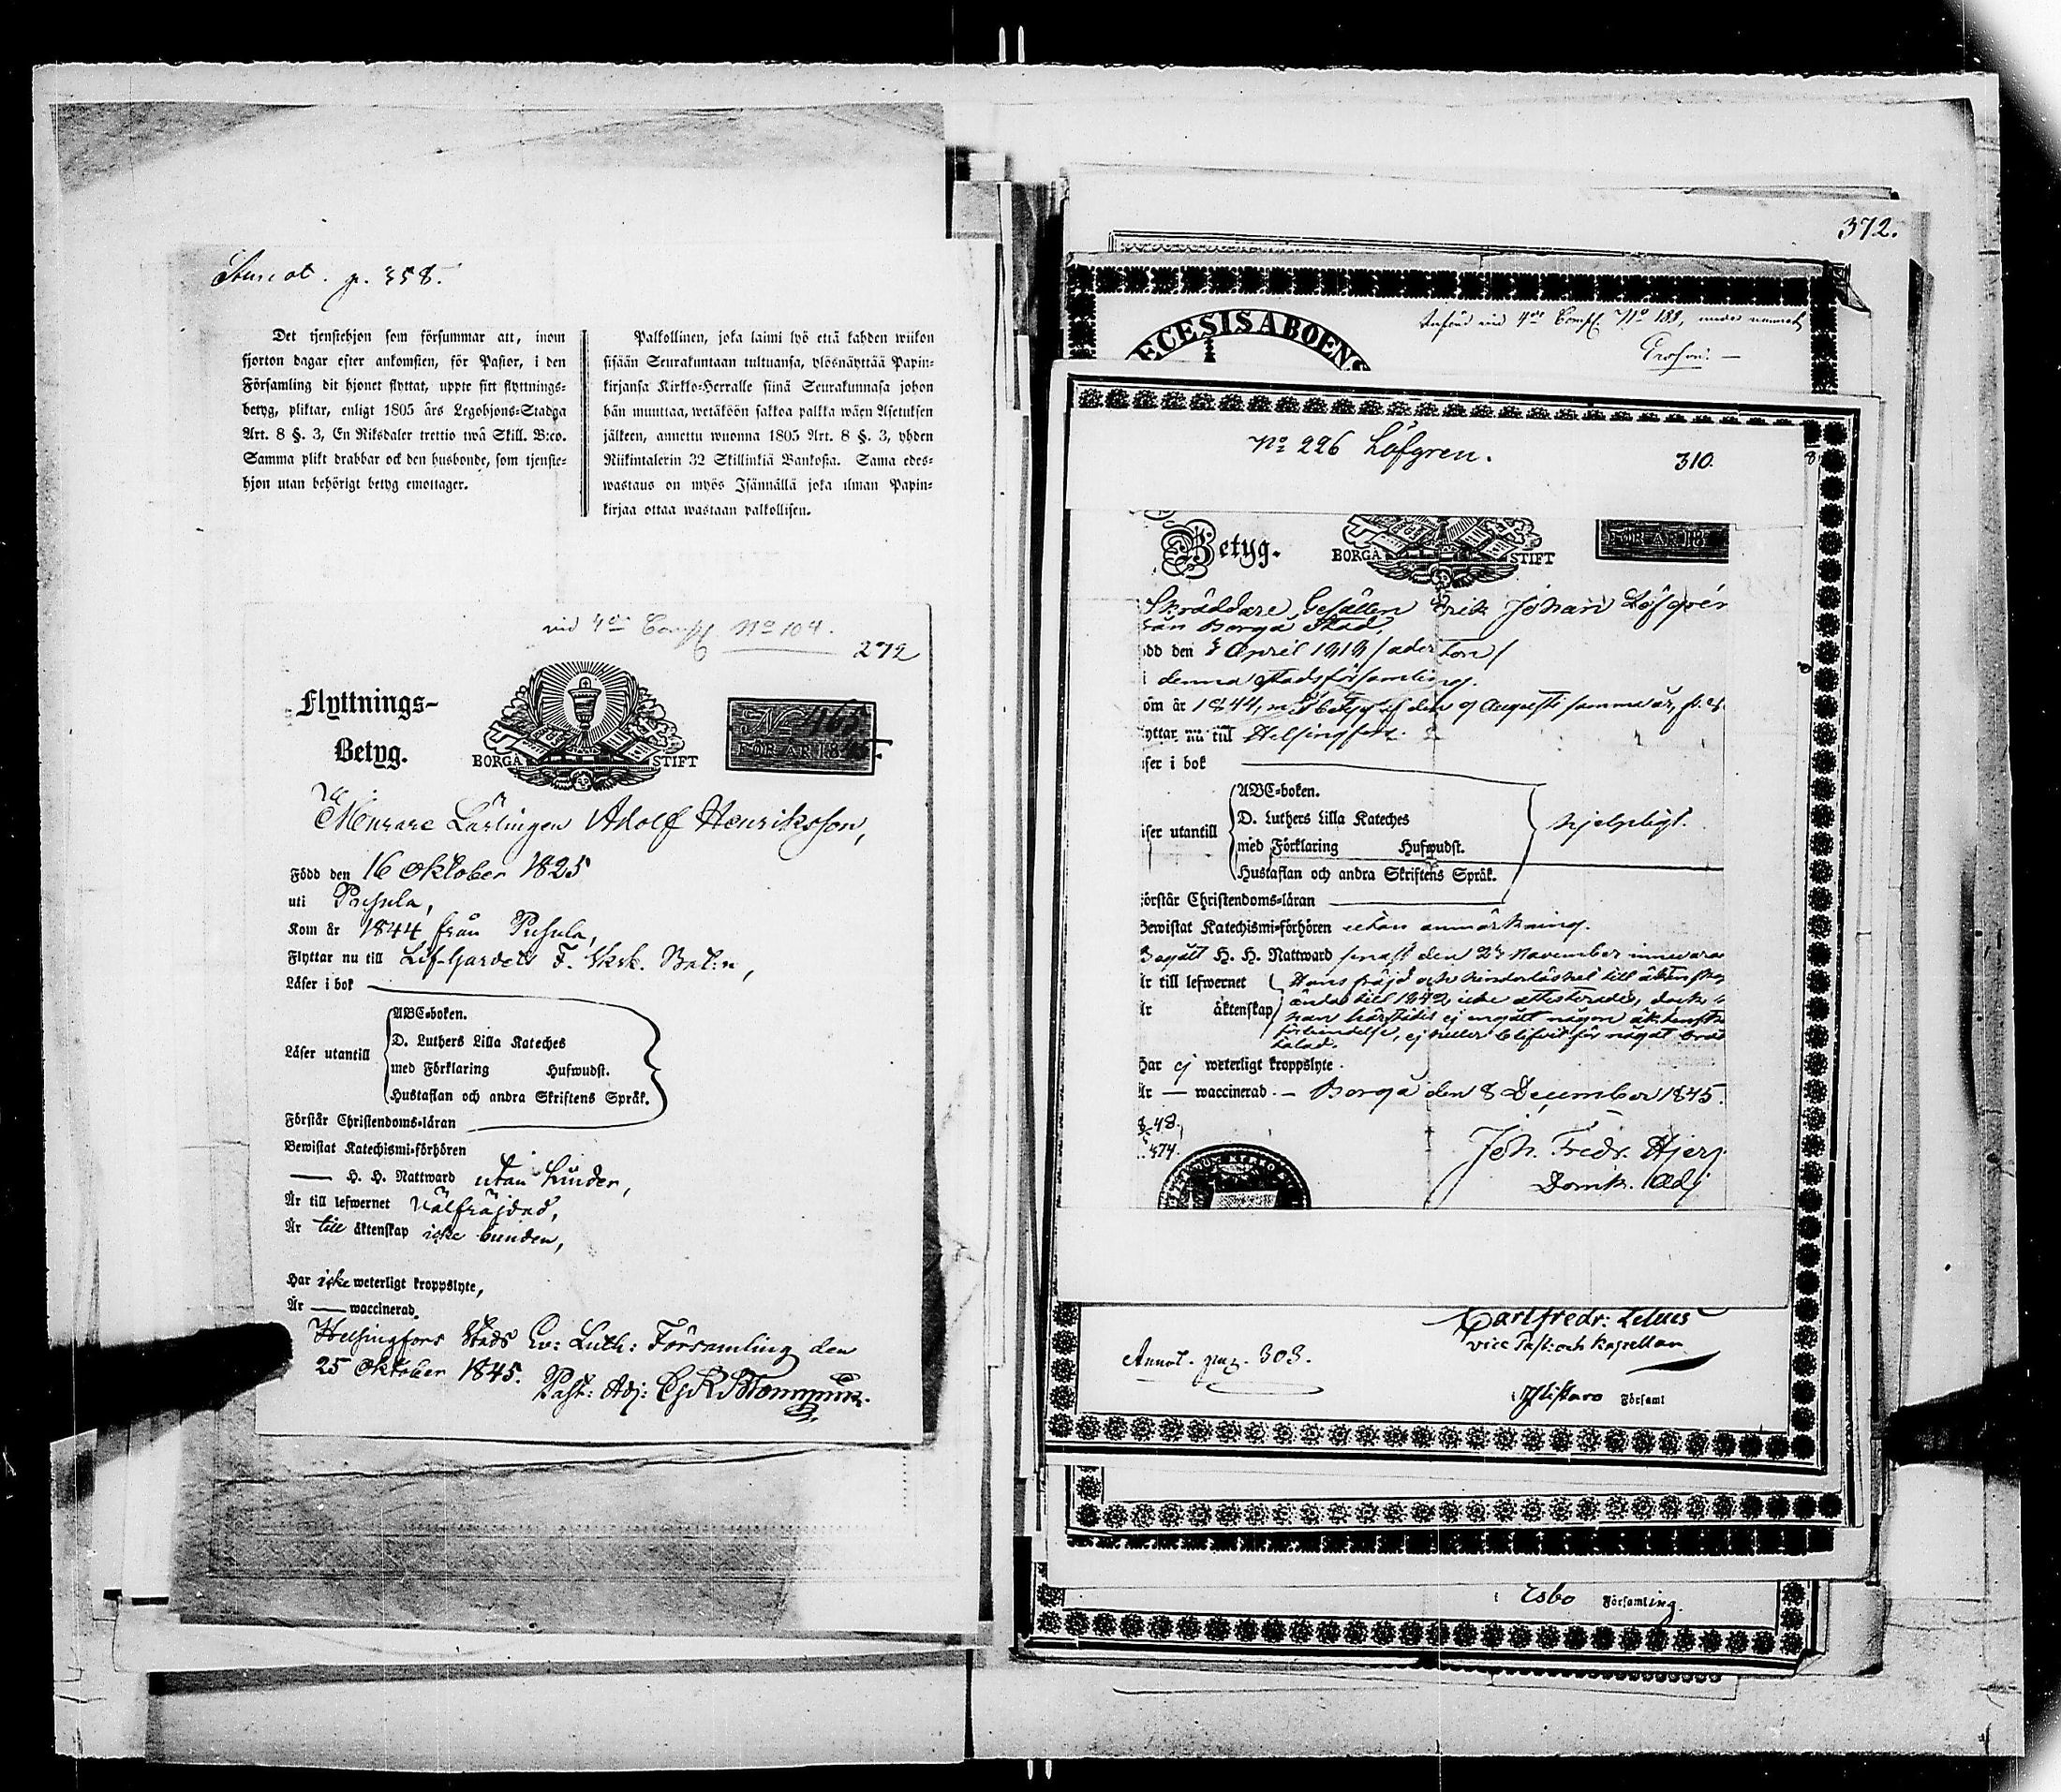 Annot. p. 358.
Det tjenstehjon som försummar att, inom
fjorton dagar efter ankomsten, för Pastor, i den
Församling dit hjonet flyttat, uppte sitt flyttnings-
betyg, pliktar, enligt 1805 års Legohjons-Stadga
Art. 8 §. 3, En Riksdaler trettio twå Skill. B:co.
Samma plikt drabbar ock den husbonde, som tjenste-
hjon utan behörigt betyg emottager.
Palkollinen, joka laimi lyö että kahden wiikon
sisään Seurakuntaan tultuansa, ylösnäyttää Papin-
kirjansa Kirkko-Herralle siinä Seurakunnasa johon
hän muuttaa, wetäköön sakkoa palkka wäen Asetuksen
jälkeen, annettu wuonna 1805 Art. 8 §. 3, yhden
Riikintalerin 32 Skillinkiä Bankossa. Sama edes-
wastaus on myös Isännällä joka ilman Papin-
kirjaa ottaa wastaan palkollisen.
vid 4de Comp. No 104.
272
Flyttnings-
Betyg.
BORGÅ STIFT
No 465
FÖR ÅR 1845.
Murare Lärlingen Adolf Henriksson,
Född den 16 Oktober 1825
uti Pusula,
Kom år 1844 från Pusula,
Flyttar nu till Lif-Gardets F. Sksk. Bat:n,
Läser i bok
Läser utantill
ABC-boken.
D. Luthers Lilla Kateches
med Förklaring Hufwudst.
Hustaflan och andra Skriftens Språk.
Förstår Christendoms-läran
Bewistat Katechismi-förhören
H. H. Nattward utan hinder,
Är till lefwernet välfräjdad,
Är till äktenskap icke bunden,
Har icke weterligt kroppslyte,
Är — waccinerad.
Helsingfors Stads Ev: Luth: Församling den
25 Oktober 1845. Past: Adj:
372.
ECESIS ABOENS
Införd vid 4de Comp. No 189, under namnet
No 226 Löfgren.
310.
Betyg.
BORGÅ STIFT
FÖR ÅR 18
Skräddare Gesällen Erik Johan Löfgren
från Borgå Stad,
ödd den 8 April 1818 /aderton/
i denna stadsförsamling.
om år 1844, med betyg af den 9 Augusti samma år,
lyttar nu till Helsingfors.
äser i bok
äser utantill
ABC-boken.
D. Luthers Lilla Kateches
med Förklaring Hufwudst.
Hustaflan och andra Skriftens Språk.
hjelpligt.
örstår Christendoms-läran
Bewistat Katechismi-förhören utan anmärkning.
Begått H. H. Nattward senast den 23 November innevara
Är till lefwernet
Är äktenskap
Hans fräjd och hinderlöshet till äktenskap
ända till 1842 icke attesterades, dock
han härstädes ej ingått någon äktenska
förbindelse, ej heller blifvit för något brott
talad.
Har ej weterligt kroppslyte.
Är — waccinerad. — Borgå den 8 December 1845.
48.
374.
Joh. Fredr.
Domk. Adj
Carl Fredr:
vice Past: och Kapellan
Annot. pag. 303.
i Ylistaro Församl
i Esbo Församling.